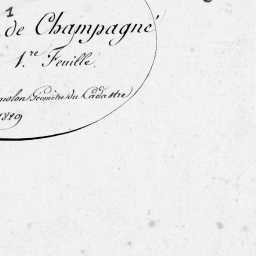 1
de Champagné
1.re Feuille.
Géomètre du Cadastre